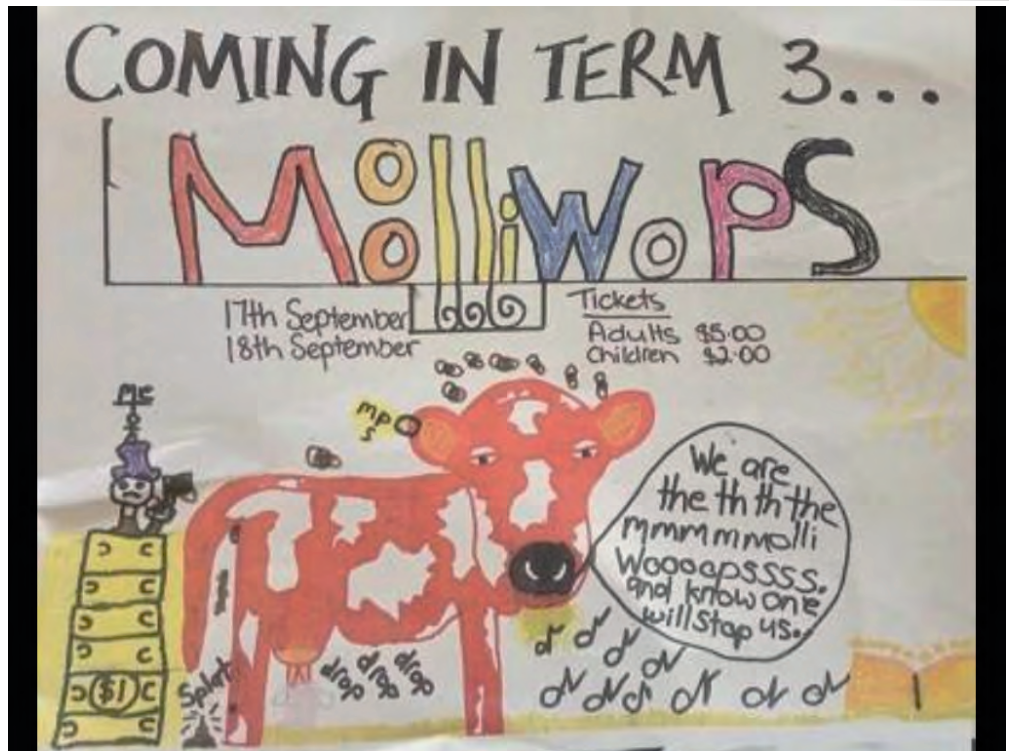 COMING IN TERM 3...
MolliWopS
17th September
18th September
Tickets
Adults $5.00
Children $2.00
Me
mp
s
We are
the th th the
mmmmmolli
Woooopssss.
and know one
will stop us.
drop drop drop
Splat
$1